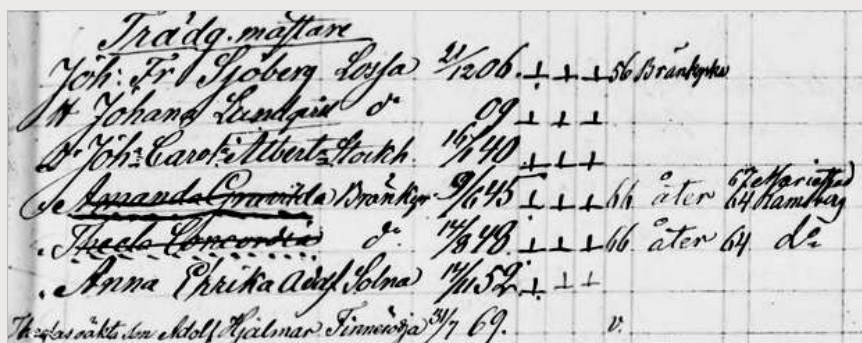 Trädg. mästare
Joh: Fr Sjöberg Lossa 21/12 06. 56 Bränkyrka
H Johana Lundqvist do 09
Dr Joh:a Carol:a Albert:a Stockh. 40
Amanda Gravilda Bränkyr 9/6 45 66 åter 64 Ramsberg
Thecla Concordia do 14/8 48. 66 åter 64 do
Anna Chrika Adolf Solna 14/11 52
Theclas oäkta son Adolf Hjalmar Finnerödja 31/7 69. v.